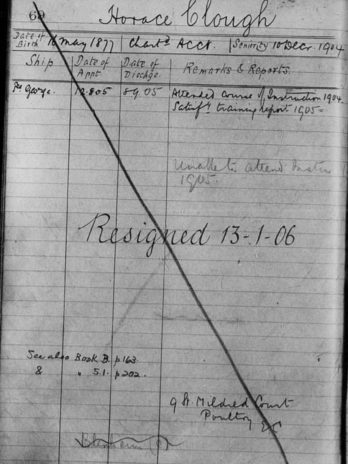 69 Horace Clough
Date of Birth 16 May 1877 Chartd Acct. Seniority 10 Decr. 1904
Ship Date of Appt. Date of Dischge Remarks & Reports.
Ps George. 12.8.05 8.9.05 Attended Course of Instruction 1904.
Satisfy training report 1905
Unable to attend
1905.
Resigned 13-1-06
See also Book B. p163.
& " 51. p202.
9 St Mildred Court
Poultry EC